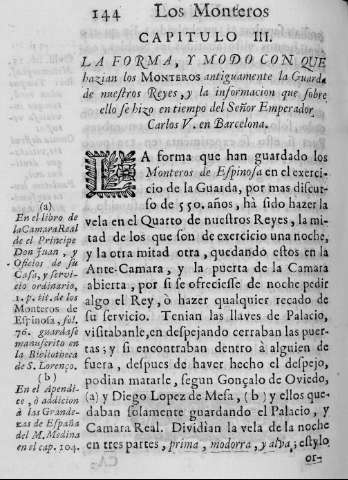 144 Los Monteros
CAPITULO III.
LA FORMA, Y MODO CON QUE
hazian los MONTEROS antiguamente la Guarda
de nuestros Reyes, y la informacion que sobre
ello se hizo en tiempo del Señor Emperador
Carlos V. en Barcelona.
LA forma que han guardado los
Monteros de Espinosa en el exerci-
cio de la Guarda, por mas discur-
so de 550. años, hà sido hazer la
vela en el Quarto de nuestros Reyes, la mi-
tad de los que son de exercicio una noche,
y la otra mitad otra, quedando estos en la
Ante-Camara, y la puerta de la Camara
abierta, por si se ofreciesse de noche pedir
algo el Rey, ò hazer qualquier recado de
su servicio. Tenian las llaves de Palacio,
visitabanle, en despejando cerraban las puer-
tas; y si encontraban dentro à alguien de
fuera, despues de haver hecho el despejo,
podian matarle, segun Gonçalo de Oviedo,
(a) y Diego Lopez de Mesa, (b) y ellos que-
daban solamente guardando el Palacio, y
Camara Real. Dividian la vela de la noche
en tres partes, prima, modorra, y alva; estylo
or-
(a)
En el libro de
la Camara Real
de el Principe
Don Juan, y
Oficios de su
Casa, y servi-
cio ordinario,
1. p. tit. de los
Monteros de
Espinosa, fol.
76. guardase
manuscrito en
la Bibliotheca
de S. Lorenço.
(b)
En el Apendi-
ce, ò addicion
à las Grande-
zas de España
del M. Medina
en el cap. 104.